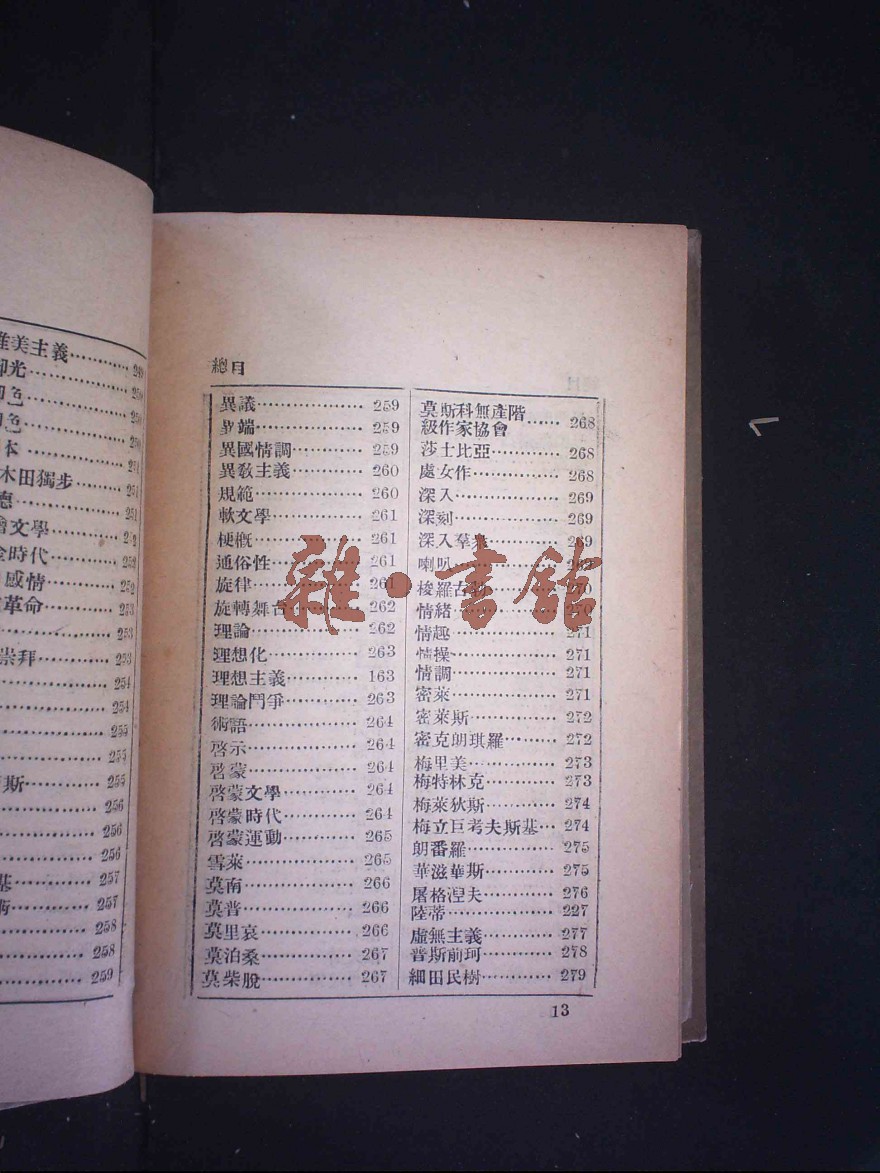 唯美主義 249
脚光 250
木田獨步 251
文學 252
金時代
感情 252
革命 253
253
崇拜 253
254
254
255
255
斯 255
256
256
256
257
257
258
258
259
總目
異議 259
異端 259
異國情調 259
異教主義 260
規範 260
軟文學 261
梗概 261
通俗性 261
旋律 261
旋轉舞台 262
理論 262
理想化 263
理想主義 163
理論鬥爭 263
術語 264
啓示 264
啓蒙 264
啓蒙文學 264
啓蒙時代 264
啓蒙運動 265
雪萊 265
莫南 266
莫普 266
莫里哀 266
莫泊桑 267
莫柴脫 267
莫斯科無產階
級作家協會 268
莎士比亞 268
處女作 268
深入 269
深刻 269
深入羣衆 269
喇叭
梭羅古勃 270
情緒 270
情趣 271
情操 271
情調 271
密萊 271
密萊斯 272
密克朗琪羅 272
梅里美 273
梅特林克 273
梅萊狄斯 274
梅立巨考夫斯基 274
朗番羅 275
華滋華斯 275
屠格涅夫 276
陸蒂 227
虛無主義 277
普斯前珂 278
細田民樹 279
13
雜·書館